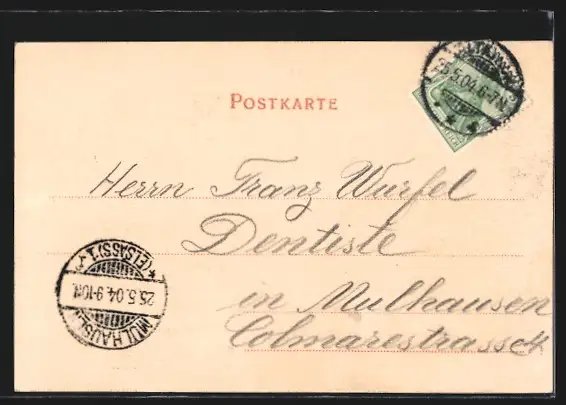 POSTKARTE
25.5.04.9-
Herrn Franz Würfel
Dentiste
in Mulhausen
Colmarestrasse 4
MÜLHAUSEN
25.5.04.9-10N
*(ELSASS)1*